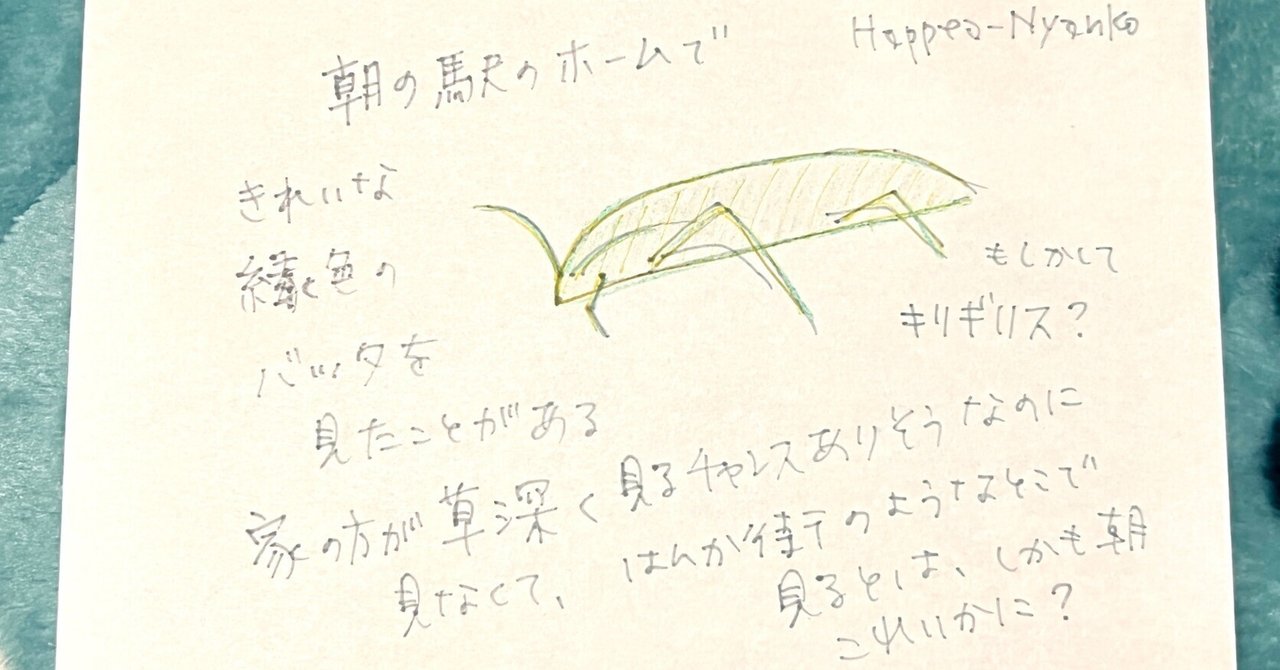 Happea-Nyanko
朝の駅のホームで
きれいな
緑色の
バッタを
見たことがある
もしかして
キリギリス?
家の方が草深く見るチャンスありそうなのに
見なくて、はんか待テのようなとこで
見るとは、しかも朝
これいかに?